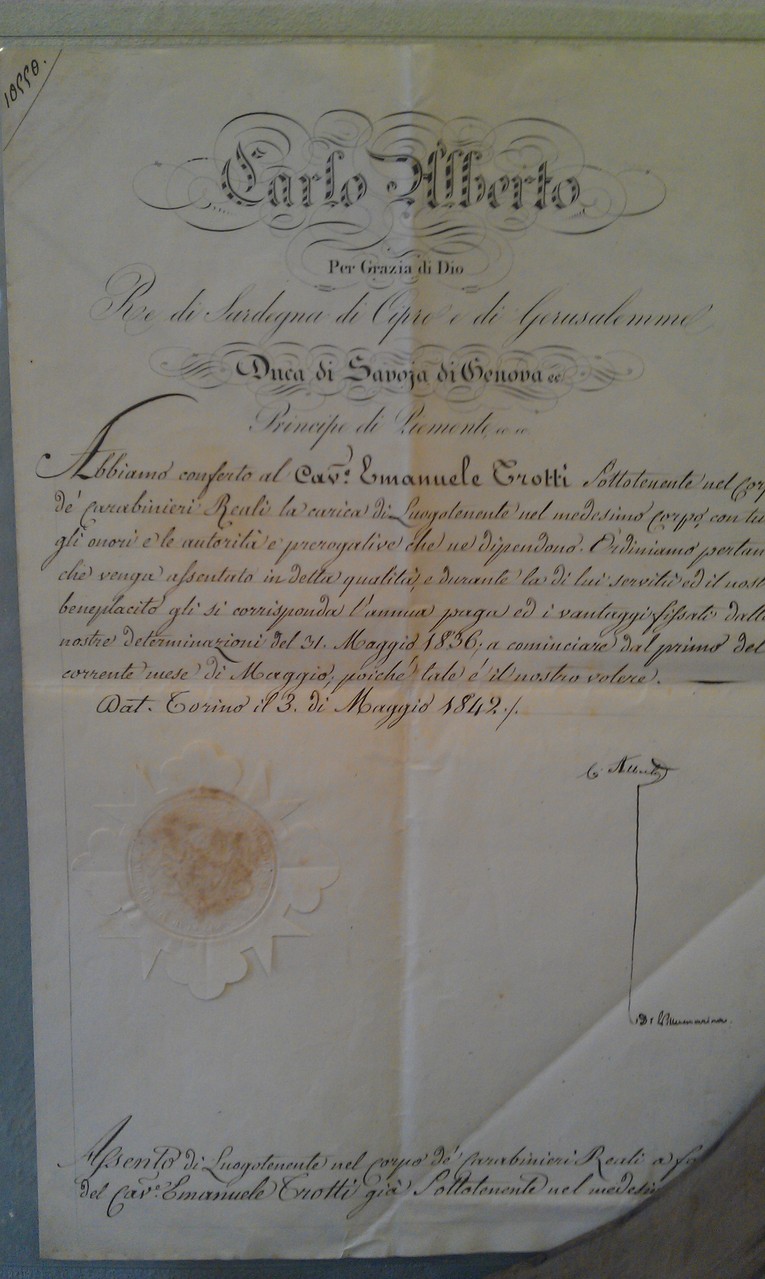 Carlo Alberto
Per Grazia di Dio
Re di Sardegna di Cipro e di Gerusalemme
Duca di Savoja di Genova ec
Principe di Piemonte, ec ec
Abbiamo conferto al Cav.e Emanuele Trotti Sottotenente nel Corp
de' Carabinieri Reali la carica di Luogotenente nel medesimo Corpo, con tu
gli onori e le autorità e prerogative che ne dipendono. Ordiniamo pertan
che venga assentato in detta qualità, e durante la di lui servitù ed il nost
beneplacito gli si corrisponda l'annua paga ed i vantaggi fissati dall
nostre determinazioni del 31. Maggio 1836; a cominciare dal primo del
corrente mese di Maggio; poichè tale è il nostro volere.
Dat. Torino il 3. di Maggio 1842./.
C. Alberto
Assento di Luogotenente nel corpo de' Carabinieri Reali a fa
del Cav.e Emanuele Trotti già Sottotenente nel medesi